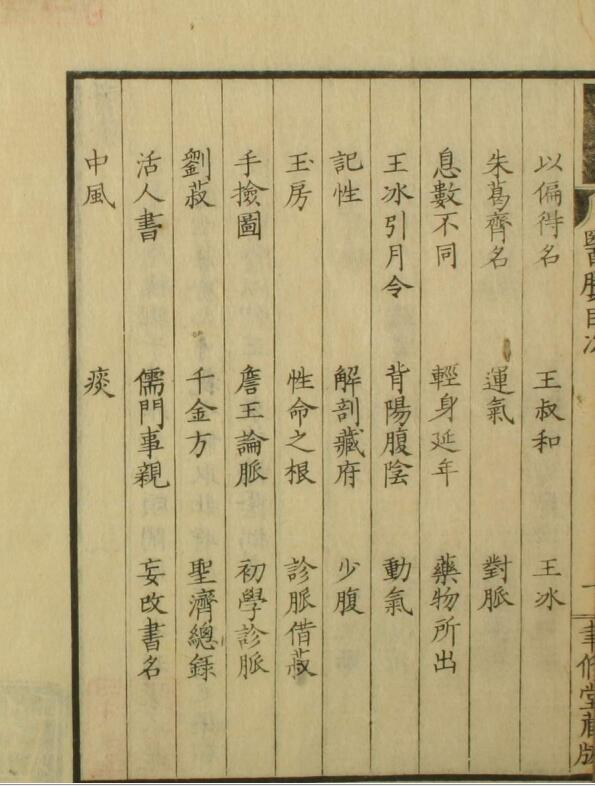 醫賸目次
聿修堂藏版
以偏得名 王叔和 王冰
朱葛齊名 運氣 對脈
息數不同 輕身延年 藥物所出
王冰引月令 背陽腹陰 動氣
記性 解剖藏府 少腹
玉房 性命之根 診脈借菽
手撿圖 詹王論脈 初學診脈
劉菽 千金方 聖濟總錄
活人書 儒門事親 妄改書名
中風 痰